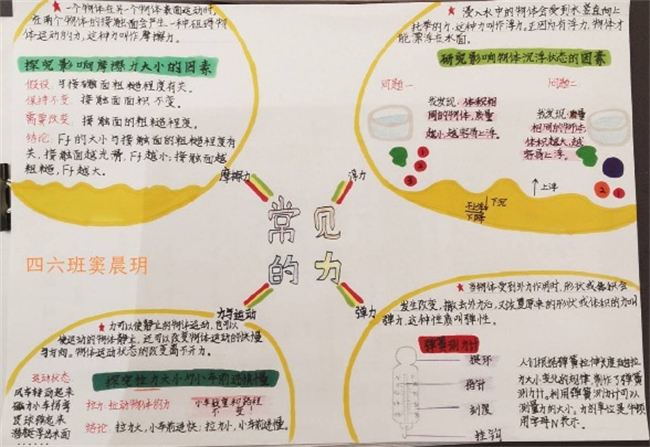 一个物体在另一个物体表面运动时,
在两个物体的接触面会产生一种阻碍物
体运动的力,这种力叫作摩擦力。
探究影响摩擦力大小的因素
假设:与接触面粗糙程度有关。
保持不变:接触面面积不变。
需要改变:接触面的粗糙程度。
结论:Ff的大小与接触面的粗糙程度有
关,接触面越光滑,Ff越小;接触面越
粗糙,Ff越大。
摩擦力
浸入水中的物体会受到水竖直向上
托举的力,这种力叫作浮力。正因有浮力,物体才
能漂浮在水面。
研究影响物体沉浮状态的因素
问题一
我发现:体积相
同的物体,质量
越小,越容易上浮。
问题二
我发现:质量
相同的物体,
体积越大,越
容易上浮。
1
2
2
1
上浮
下沉
下降
浮力
常见
的力
四六班窦晨玥
力与运动
力可以使静止的物体运动,也可以
使运动的物体静止,还可以改变物体运动的快慢
与方向。物体运动状态的改变离不开力。
运动状态
风车转动起来
磁力小车拐弯
足球弹起来
潜艇浮出水面
探究拉力大小与小车前进快慢
拉力:拉动物体的力
结论:拉力大,小车前进快;拉力小,小车前进慢。
弹力
当物体受到外力作用时,形状或体积会
发生改变,撤去外力后,又恢复原来的形状或体积的力叫
弹力,这种性质叫弹性。
弹簧测力计
提环
指针
刻度
挂钩
人们根据弹簧拉伸长度随拉
力大小变化的规律,制作了弹簧
测力计。利用弹簧测力计可以
测量力的大小,力的单位是牛顿
用字母N表示。